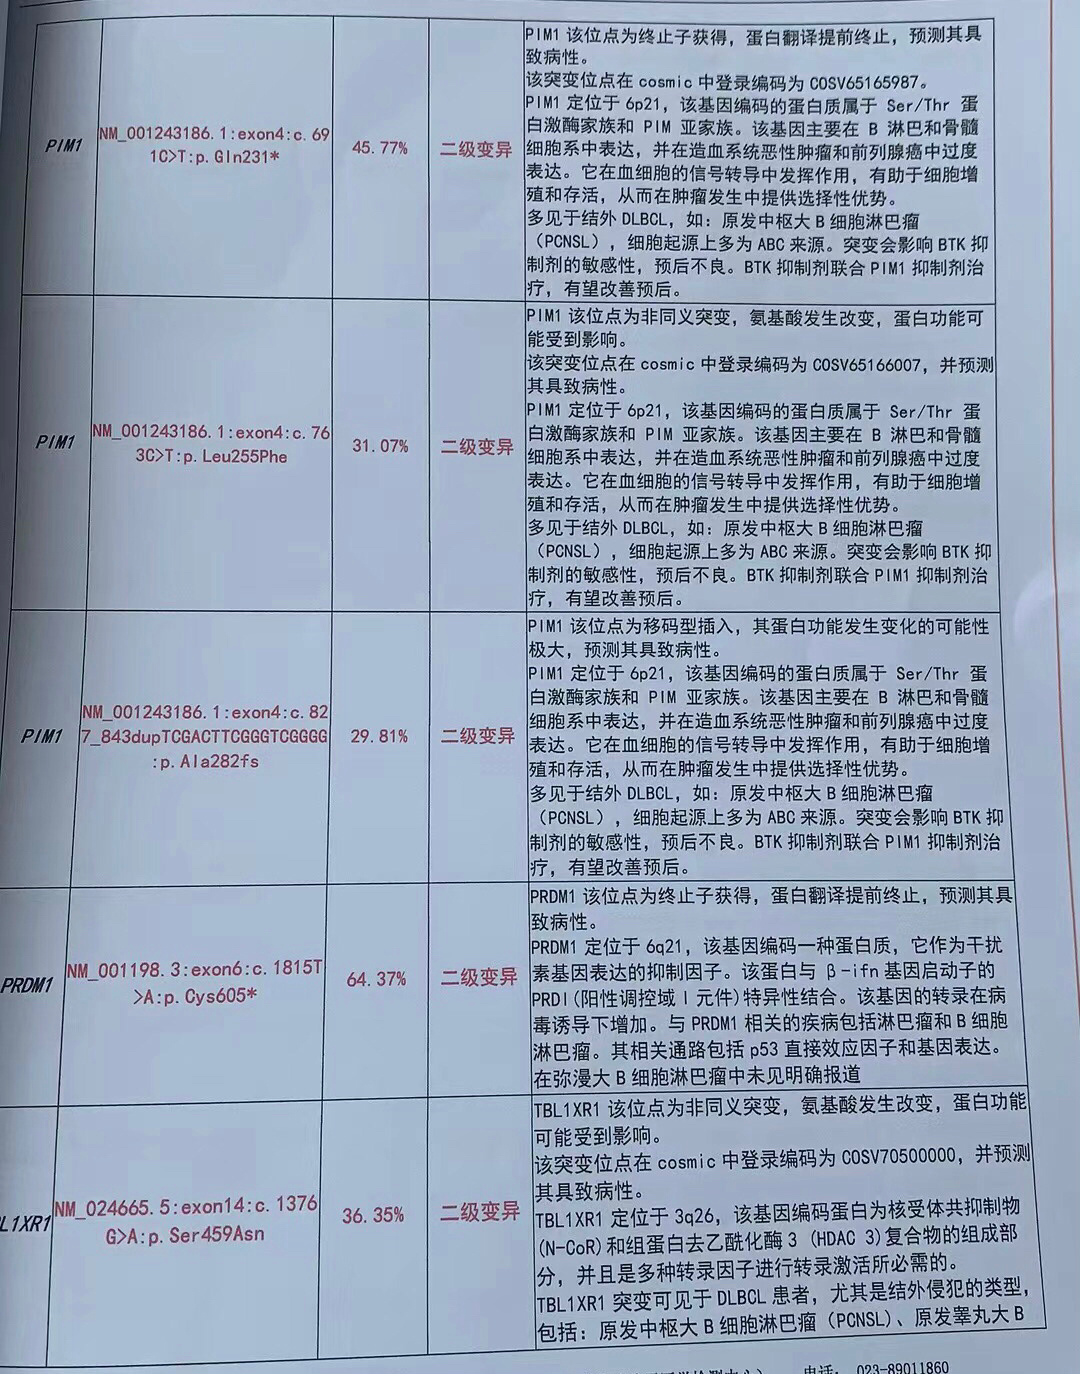 PIM1
NM_001243186.1:exon4:c.69
1C>T:p.Gln231*
45.77%
二级变异
PIM1 该位点为终止子获得，蛋白翻译提前终止，预测其具
致病性。
该突变位点在 cosmic 中登录编码为 COSV65165987。
PIM1 定位于 6p21，该基因编码的蛋白质属于 Ser/Thr 蛋
白激酶家族和 PIM 亚家族。该基因主要在 B 淋巴和骨髓
细胞系中表达，并在造血系统恶性肿瘤和前列腺癌中过度
表达。它在血细胞的信号转导中发挥作用，有助于细胞增
殖和存活，从而在肿瘤发生中提供选择性优势。
多见于结外 DLBCL，如：原发中枢大 B 细胞淋巴瘤
（PCNSL），细胞起源上多为 ABC 来源。突变会影响 BTK 抑
制剂的敏感性，预后不良。BTK 抑制剂联合 PIM1 抑制剂治
疗，有望改善预后。
PIM1
NM_001243186.1:exon4:c.76
3C>T:p.Leu255Phe
31.07%
二级变异
PIM1 该位点为非同义突变，氨基酸发生改变，蛋白功能可
能受到影响。
该突变位点在 cosmic 中登录编码为 COSV65166007，并预测
其具致病性。
PIM1 定位于 6p21，该基因编码的蛋白质属于 Ser/Thr 蛋
白激酶家族和 PIM 亚家族。该基因主要在 B 淋巴和骨髓
细胞系中表达，并在造血系统恶性肿瘤和前列腺癌中过度
表达。它在血细胞的信号转导中发挥作用，有助于细胞增
殖和存活，从而在肿瘤发生中提供选择性优势。
多见于结外 DLBCL，如：原发中枢大 B 细胞淋巴瘤
（PCNSL），细胞起源上多为 ABC 来源。突变会影响 BTK 抑
制剂的敏感性，预后不良。BTK 抑制剂联合 PIM1 抑制剂治
疗，有望改善预后。
PIM1
NM_001243186.1:exon4:c.82
7_843dupTCGACTTCGGGTCGGGG
:p.Ala282fs
29.81%
二级变异
PIM1 该位点为移码型插入，其蛋白功能发生变化的可能性
极大，预测其具致病性。
PIM1 定位于 6p21，该基因编码的蛋白质属于 Ser/Thr 蛋
白激酶家族和 PIM 亚家族。该基因主要在 B 淋巴和骨髓
细胞系中表达，并在造血系统恶性肿瘤和前列腺癌中过度
表达。它在血细胞的信号转导中发挥作用，有助于细胞增
殖和存活，从而在肿瘤发生中提供选择性优势。
多见于结外 DLBCL，如：原发中枢大 B 细胞淋巴瘤
（PCNSL），细胞起源上多为 ABC 来源。突变会影响 BTK 抑
制剂的敏感性，预后不良。BTK 抑制剂联合 PIM1 抑制剂治
疗，有望改善预后。
PRDM1
NM_001198.3:exon6:c.1815T
>A:p.Cys605*
64.37%
二级变异
PRDM1 该位点为终止子获得，蛋白翻译提前终止，预测其具
致病性。
PRDM1 定位于 6q21，该基因编码一种蛋白质，它作为干扰
素基因表达的抑制因子。该蛋白与 β-ifn 基因启动子的
PRDI(阳性调控域 I 元件)特异性结合。该基因的转录在病
毒诱导下增加。与 PRDM1 相关的疾病包括淋巴瘤和 B 细胞
淋巴瘤。其相关通路包括 p53 直接效应因子和基因表达。
在弥漫大 B 细胞淋巴瘤中未见明确报道
L1XR1
NM_024665.5:exon14:c.1376
G>A:p.Ser459Asn
36.35%
二级变异
TBL1XR1 该位点为非同义突变，氨基酸发生改变，蛋白功能
可能受到影响。
该突变位点在 cosmic 中登录编码为 COSV70500000，并预测
其具致病性。
TBL1XR1 定位于 3q26，该基因编码蛋白为核受体共抑制物
(N-CoR)和组蛋白去乙酰化酶 3 (HDAC 3)复合物的组成部
分，并且是多种转录因子进行转录激活所必需的。
TBL1XR1 突变可见于 DLBCL 患者，尤其是结外侵犯的类型，
包括：原发中枢大 B 细胞淋巴瘤（PCNSL）、原发睾丸大 B
电话：023-89011860